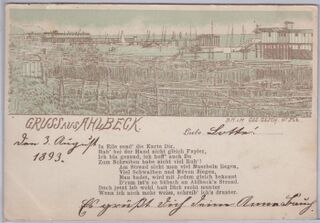 GRUSS aus AHLBECK.
D.R.G.M.
Liebe Lotte!
Den 3. August
1893.
In Eile send' die Karte Dir,
Hab' bei der Hand nicht gleich Papier,
Ich bin gesund, ich hoff' auch Du
Zum Schreiben habe nicht viel Ruh'!
Am Strand sieht man viel Muscheln liegen,
Viel Schwalben und Möven fliegen,
Man badet, wird mit Jedem gleich bekannt
D'rum ist's so hübsch an Ahlbeck's Strand.
Doch jetzt leb wohl, halt Dich recht munter
Wenn ich noch mehr weiss, schreib' ich's drunter.
Es grüßt Dich Deine Anna